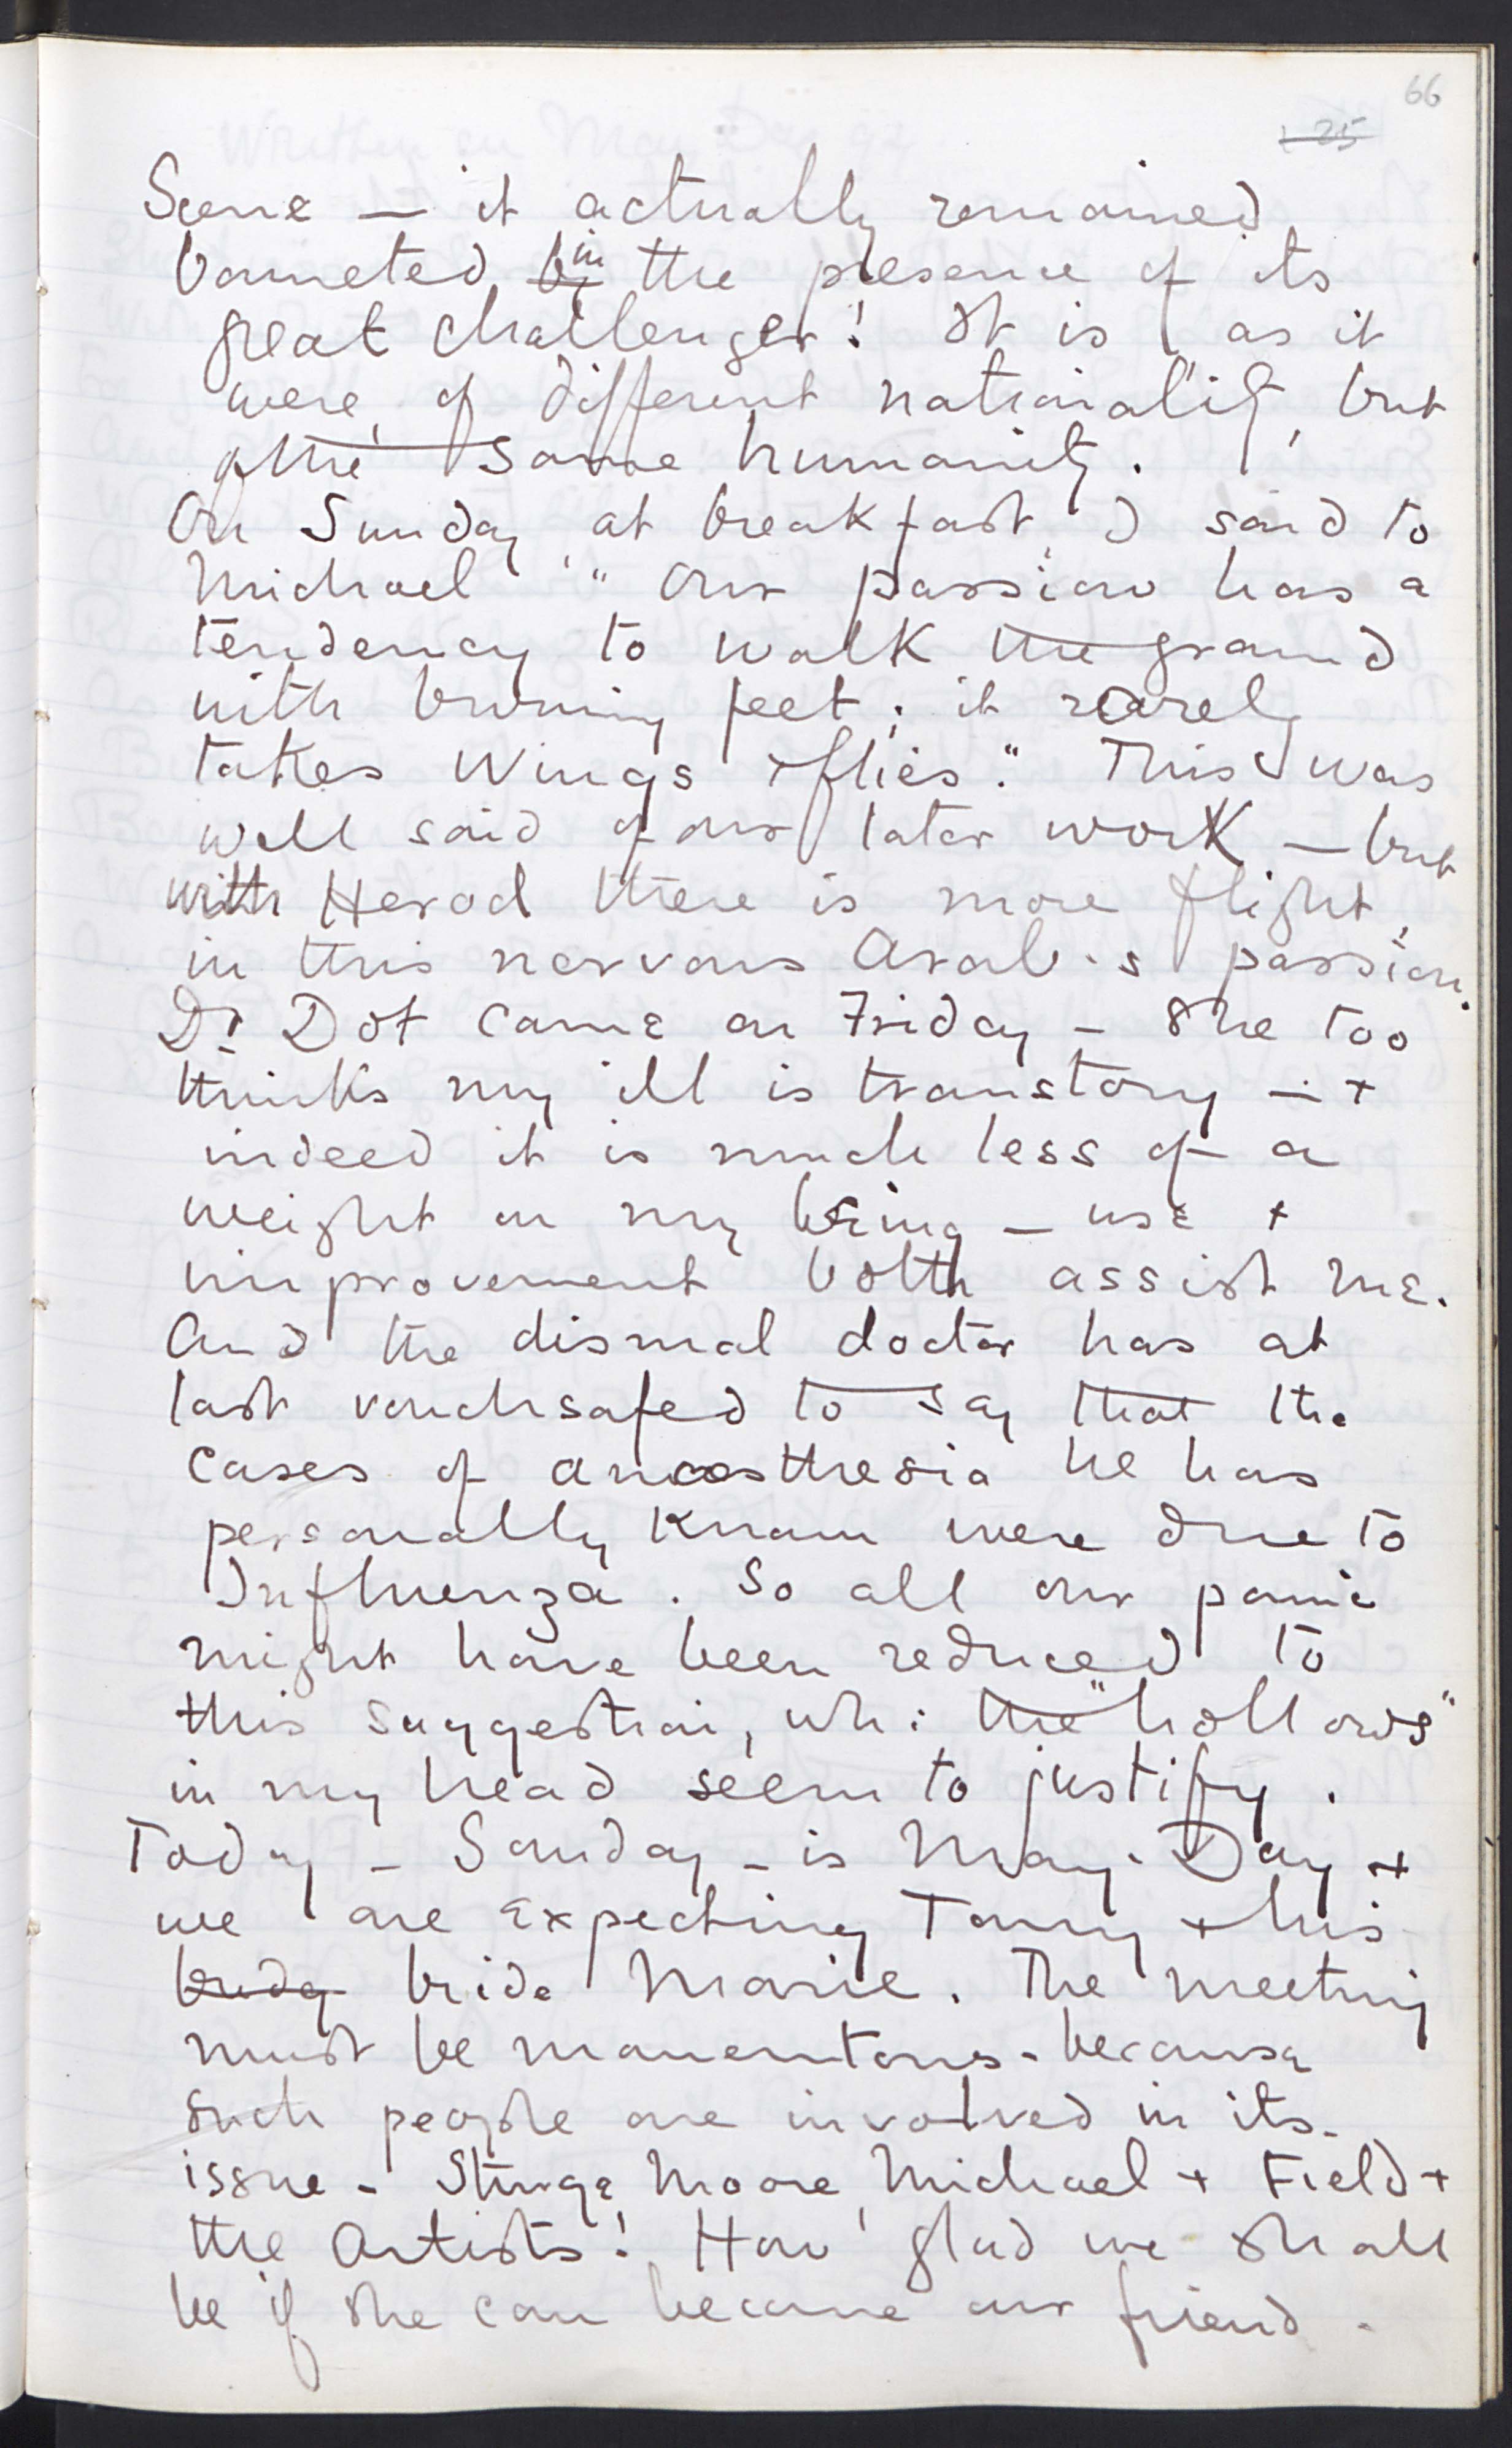 66
125
Scene — it actually remained
bonneted by in the presence of its
great challenger! It is, as it
were, of different nationality, but
of the same humanity.
On Sunday at breakfast, I said to
Michael "Our passion has a
tendency to walk the ground
with burning feet; it rarely
takes wings + flies." This was
well said of our later work — but
with Herod there is more flight,
in this nervous Arab's passion.
Dr Dot came on Friday – She too
thinks my ill is transtory — +
indeed it is much less of a
weight on my being — use +
improvement both assist me.
And the dismal doctor has at
last vouchsafed to say that the
cases of anaesthesia he has
personally known were due to
Influenza. So all our panic
might have been reduced to
this suggestion, wh: the "hollows"
in my head seem to justify.
Today – Sunday – is May-Day +
we are expecting Tommy + his
bride Marie. The meeting
must be momentous – because
such people are involved in its
issue – Sturge Moore, Michael + Field +
the Artists! How glad we shall
be if she can become our friend.